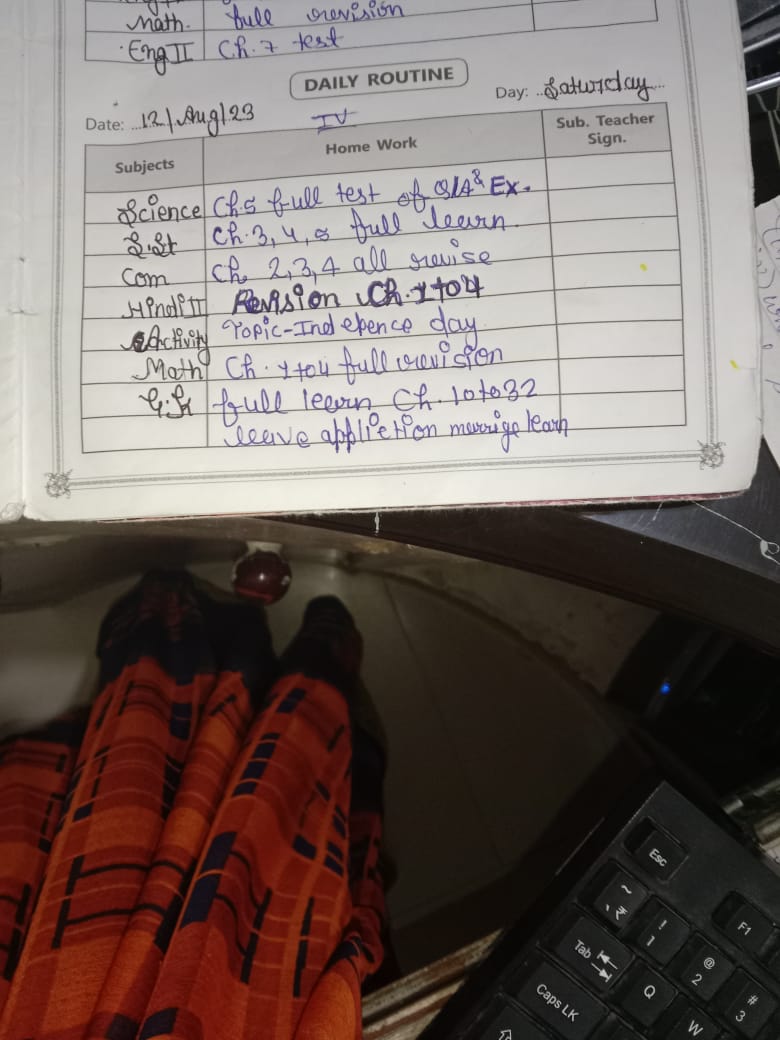 Math. full revision
Eng II Ch. 7 test
DAILY ROUTINE
Date: 12/Aug/23 Day: Saturday
IV
Subjects Home Work Sub. Teacher Sign.
Science Ch.5 full test of Q/A & Ex.
S.St Ch. 3, 4, 5 full learn
Com Ch 2, 3, 4 all revise
Hindi II Revision Ch. 1 to 4
Activity Topic-Indepence day
Math Ch. 1 to 4 full revision
G.K full learn Ch. 10 to 32
leave appliction marrige learn
Esc
~ ` ₹
! 1
F1
Tab
@ 2
# 3
Q
Caps LK
W